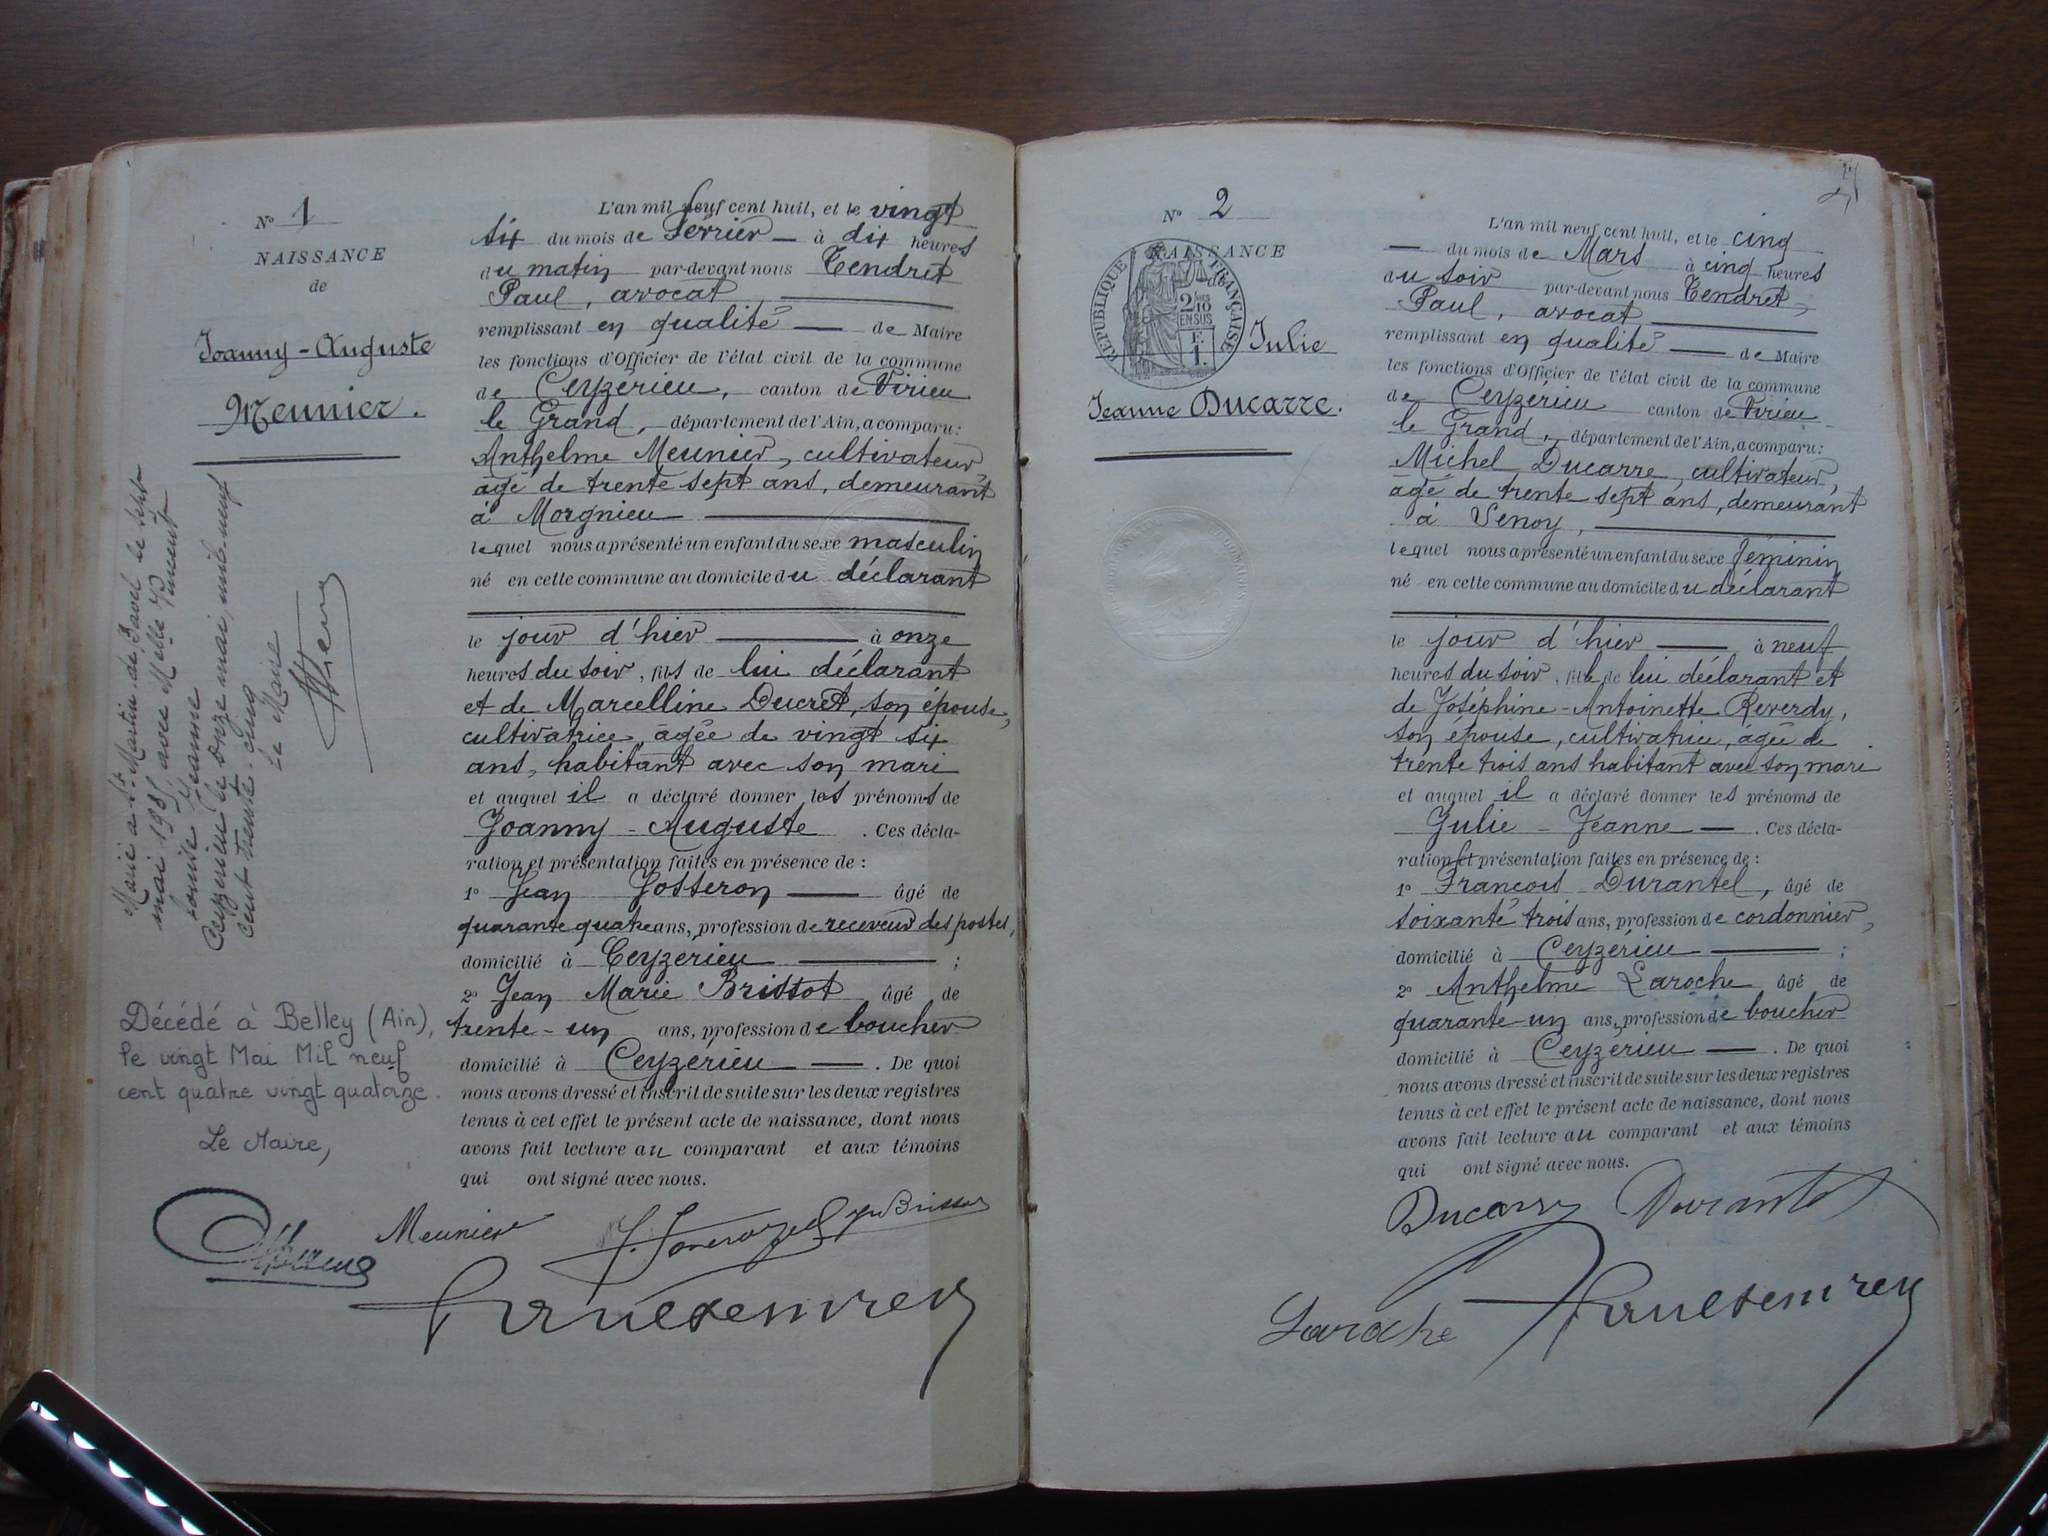 Nº 1
NAISSANCE
de
Joanny-Auguste
Meunier.
Marié à St Martin de Bavel le sept
mai 1935 avec Melle
Louise Jeanne
Ceyzérieu le onze mai mil neuf
cent trente-cinq
Le Maire
Décédé à Belley (Ain),
le vingt Mai Mil neuf
cent quatre vingt quatorze.
Le Maire,
L'an mil neuf cent huit, et le vingt
six du mois de Février — à dix heures
du matin par-devant nous Tendret
Paul, avocat
remplissant en qualité — de Maire
les fonctions d'Officier de l'état civil de la commune
de Ceyzérieu, canton de Virieu
le Grand, département de l'Ain, a comparu:
Anthelme Meunier, cultivateur,
âgé de trente sept ans, demeurant
à Morgnieu
lequel nous a présenté un enfant du sexe masculin
né en cette commune au domicile du déclarant
le jour d'hier — à onze
heures du soir, fils de lui déclarant
et de Marcelline Ducret, son épouse,
cultivatrice, âgée de vingt six
ans, habitant avec son mari
et auquel il a déclaré donner les prénoms de
Joanny-Auguste. Ces décla-
ration et présentation faites en présence de :
1º Jean Josseron — âgé de
quarante quatre ans, profession de receveur des postes,
domicilié à Ceyzérieu — ;
2º Jean Marie Brissot âgé de
trente-un ans, profession de boucher
domicilié à Ceyzérieu — . De quoi
nous avons dressé et inscrit de suite sur les deux registres
tenus à cet effet le présent acte de naissance, dont nous
avons fait lecture au comparant et aux témoins
qui ont signé avec nous.
Meunier Brissot
Nº 2
NAISSANCE
de
RÉPUBLIQUE FRANÇAISE
2/10 EN SUS
F. 1.
Julie
Jeanne Ducarre.
L'an mil neuf cent huit, et le cinq
— du mois de Mars à cinq heures
du soir par-devant nous Tendret,
Paul, avocat
remplissant en qualité — de Maire
les fonctions d'Officier de l'état civil de la commune
de Ceyzérieu canton de Virieu
le Grand, département de l'Ain, a comparu:
Michel Ducarre, cultivateur,
âgé de trente sept ans, demeurant
à Senoy,
lequel nous a présenté un enfant du sexe féminin
né en cette commune au domicile du déclarant
le jour d'hier — à neuf
heures du soir, fille de lui déclarant et
de Joséphine-Antoinette Reverdy,
son épouse, cultivatrice, âgée de
trente trois ans habitant avec son mari
et auquel il a déclaré donner les prénoms de
Julie-Jeanne — . Ces décla-
ration et présentation faites en présence de :
1º François Durantel, âgé de
soixante trois ans, profession de cordonnier,
domicilié à Ceyzérieu — ;
2º Anthelme Laroche âgé de
quarante-un ans, profession de boucher
domicilié à Ceyzérieu — . De quoi
nous avons dressé et inscrit de suite sur les deux registres
tenus à cet effet le présent acte de naissance, dont nous
avons fait lecture au comparant et aux témoins
qui ont signé avec nous.
Ducarre Durantel
Laroche